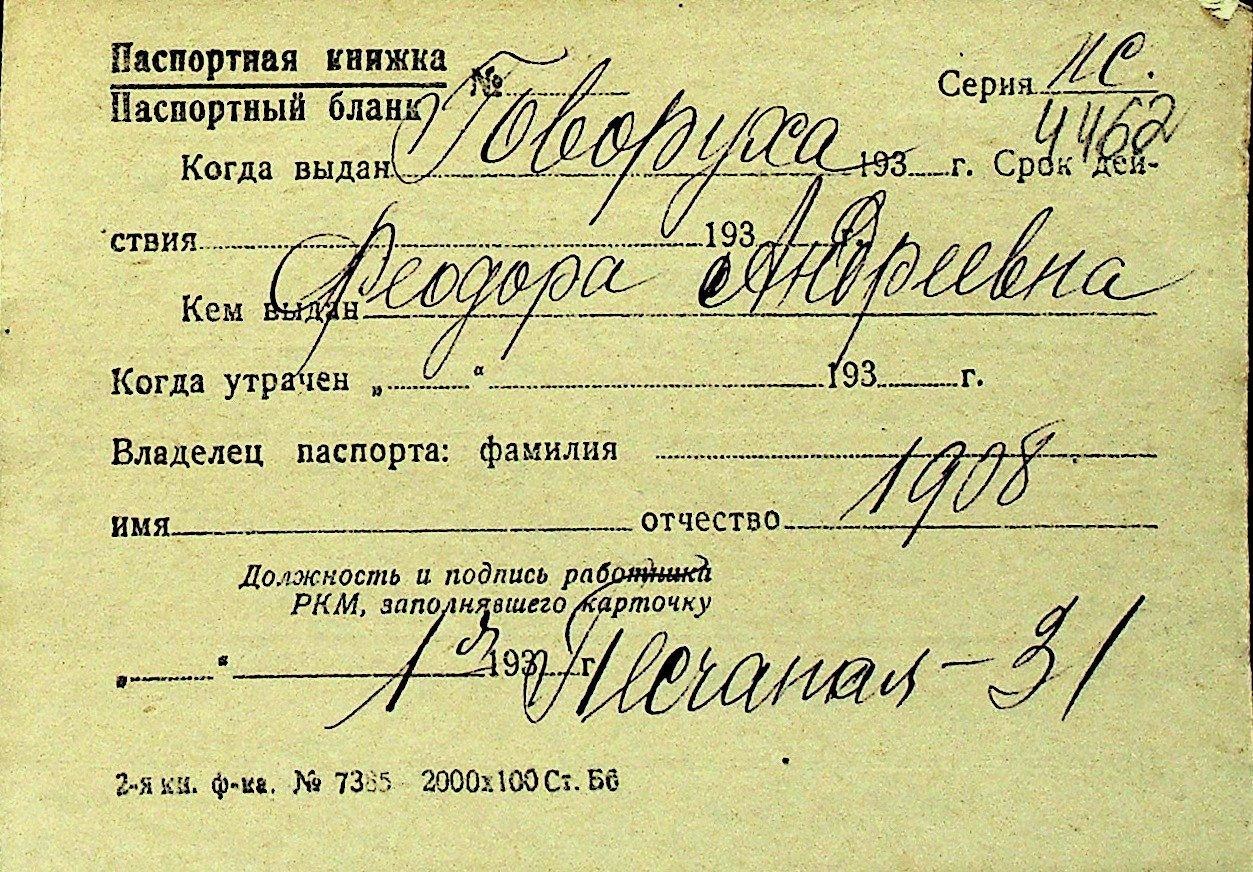 Паспортная книжка
Паспортный бланк № Серия ПС.
4462
Говоруха
Когда выдан 193 г. Срок дей-
ствия 193 г.
Феодора Андреевна
Кем выдан
Когда утрачен „ “ 193 г.
Владелец паспорта: фамилия
1908
имя отчество
Должность и подпись работника
РКМ, заполнявшего карточку
„ “ 193 г.
1я Песчаная - 31
2-я кн. ф-ка. № 7385 2000х100 Ст. Бб